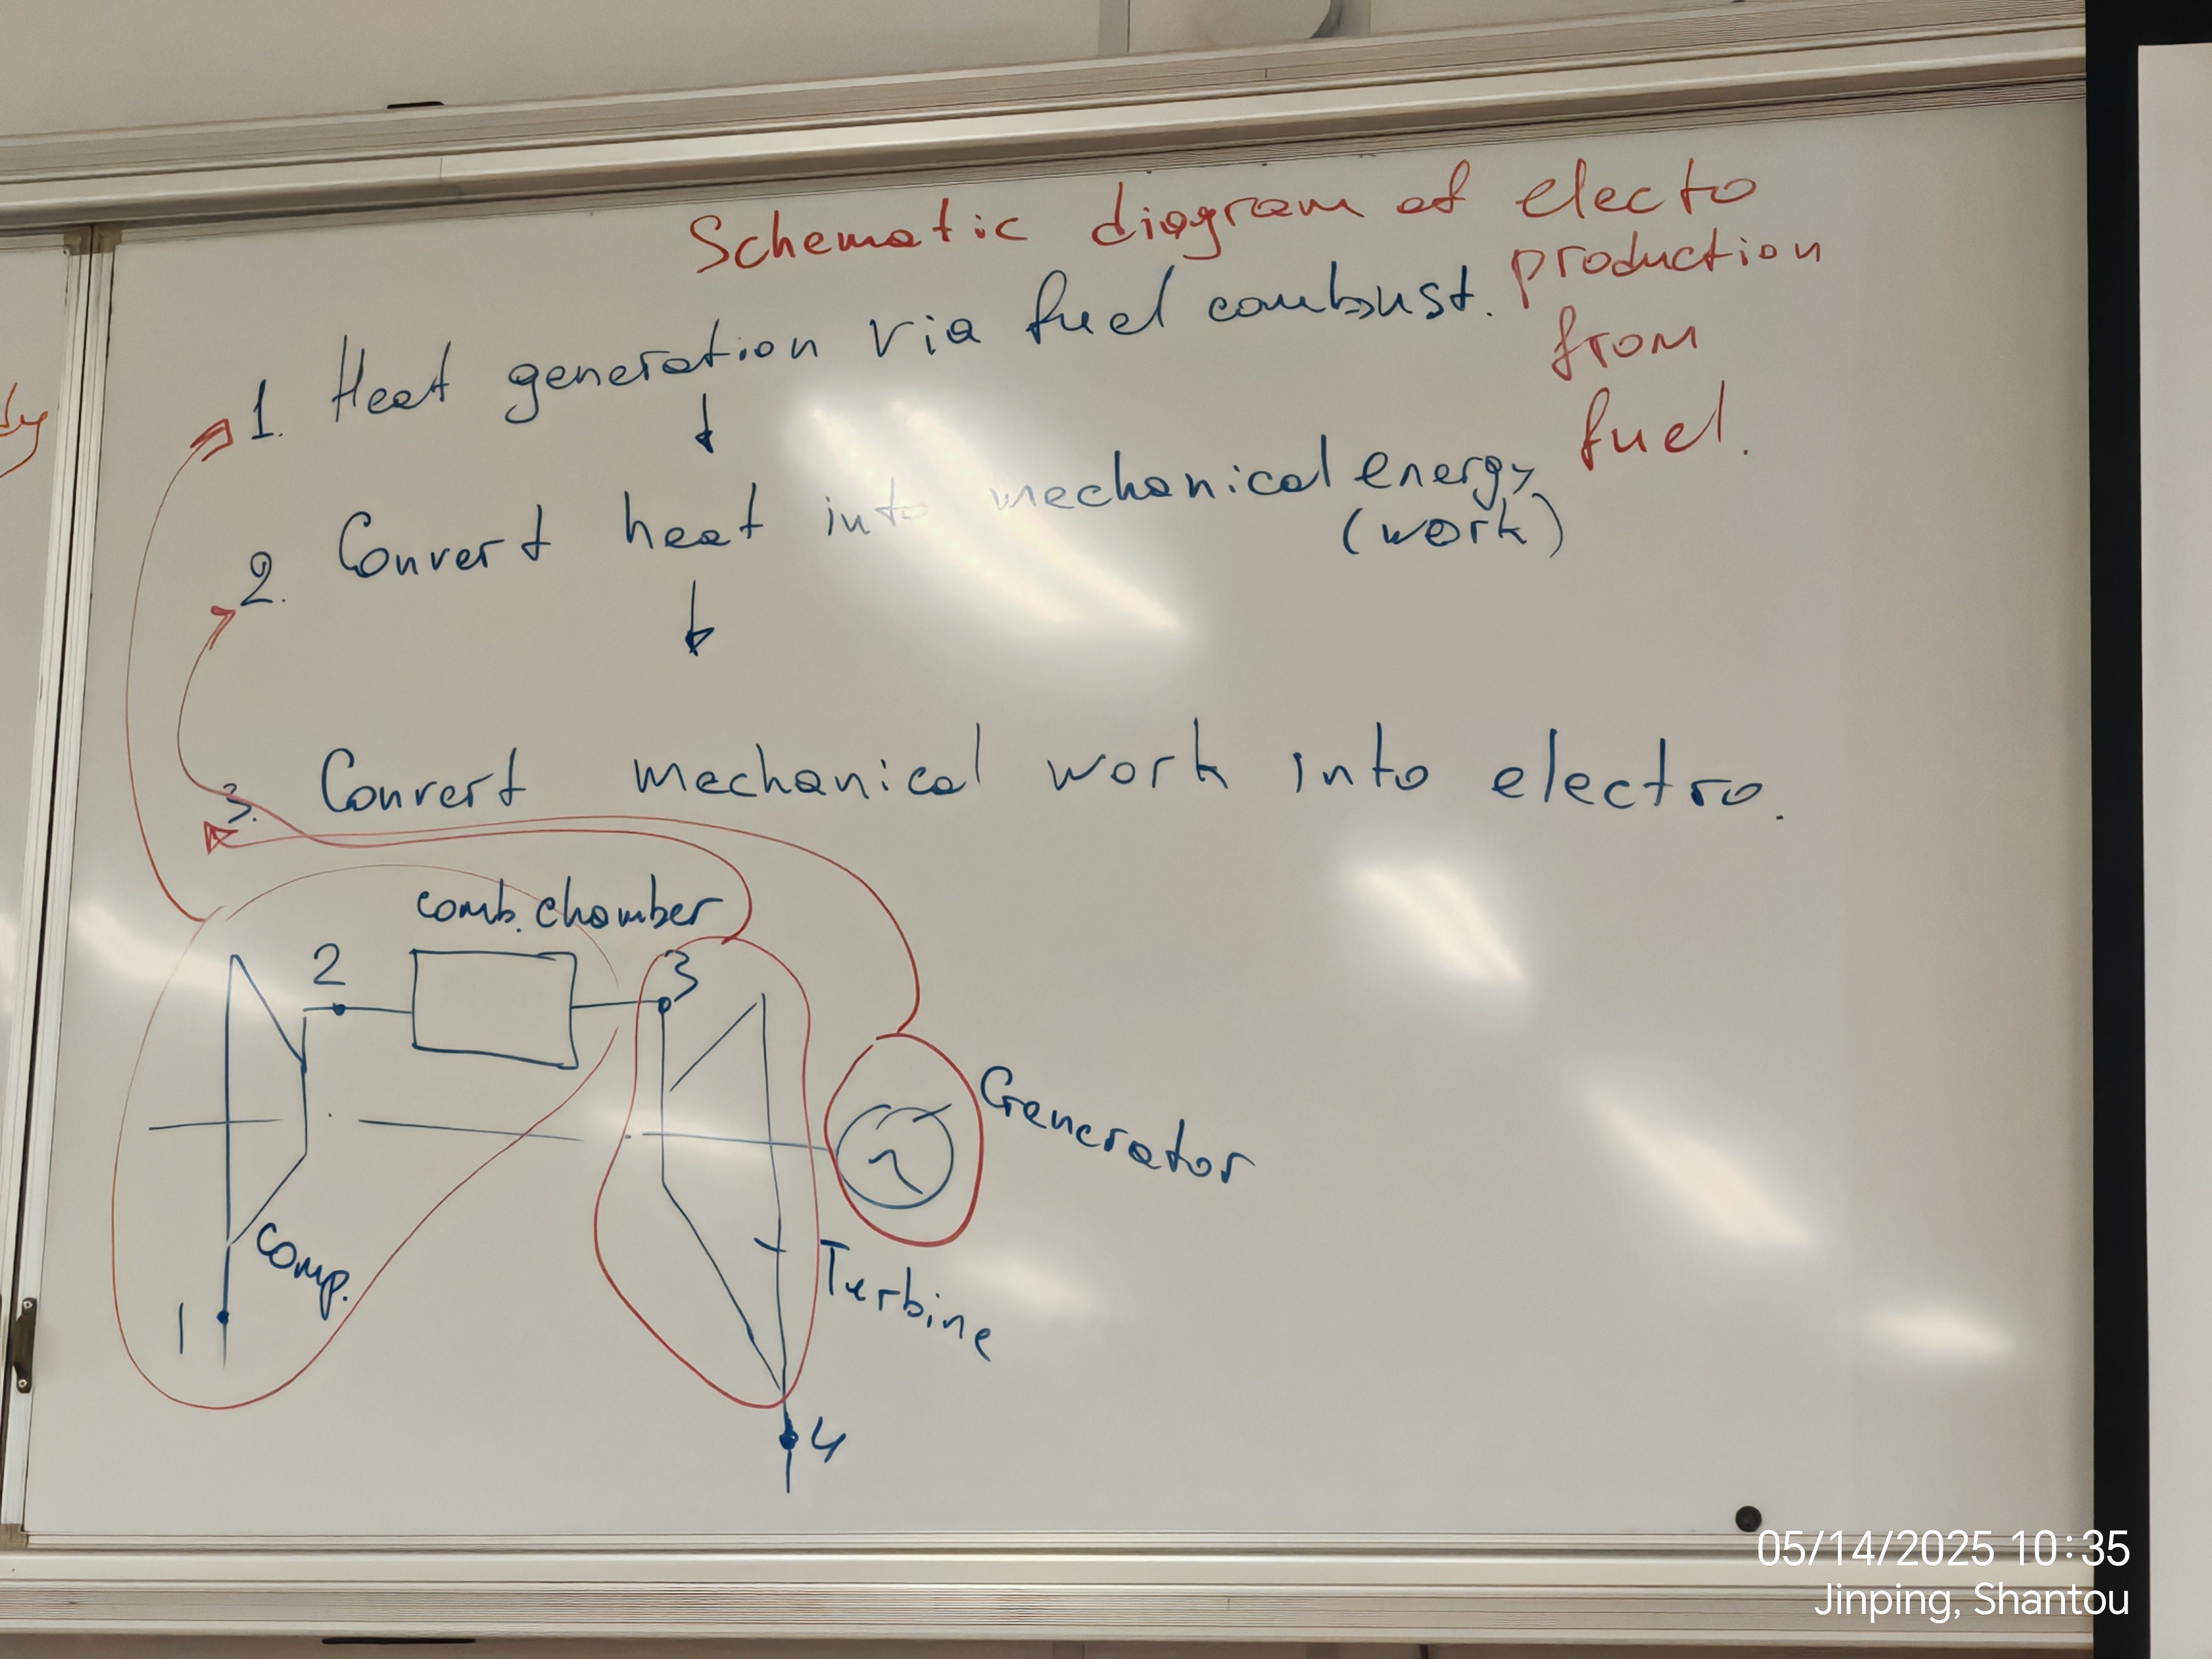 Schematic diagram of electo
production
from
fuel.
1. Heat generation via fuel combust.
2. Convert heat into mechanical energy
(work)
3. Convert mechanical work into electro.
comb. chamber
2
3
Generator
comp.
Turbine
1
4
05/14/2025 10:35
Jinping, Shantou